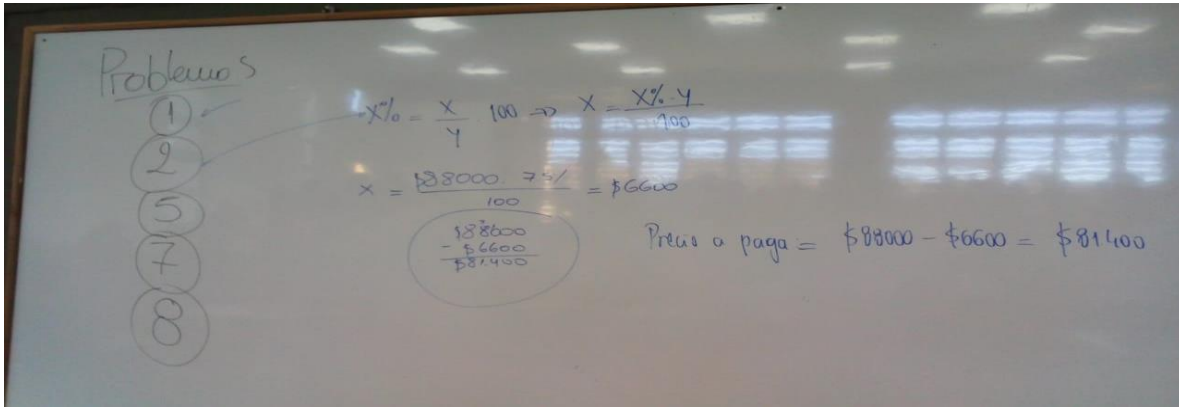 Problemas
1
2
5
7
8
X% = X/Y 100 => X = X%.Y/100
X = $88000 7.5%/100 = $6600
$88000
- $6600
$81.400
Precio a paga = $88000 - $6600 = $81400